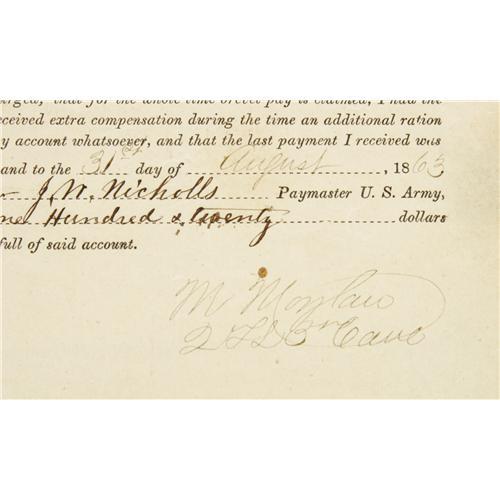 that for the whole time brevet pay is claimed, I had the
received extra compensation during the time an additional ration
y account whatsoever, and that the last payment I received was
and to the 31st day of August, 1863
J. W. Nicholls Paymaster U. S. Army,
ne Hundred & twenty dollars
full of said account.
M
2 Lt 3rd Cav